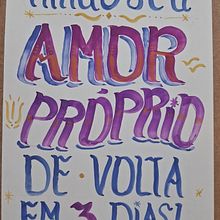 TRAGO SEU
AMOR
PRÓPRIO
DE VOLTA
EM 3 DIAS!